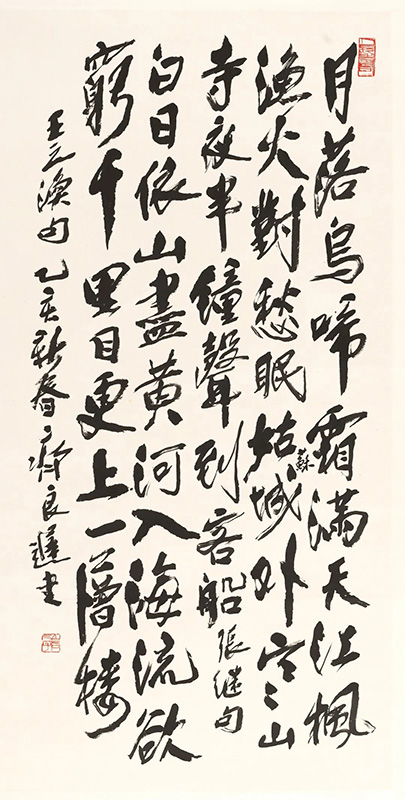 月落烏啼霜滿天江楓
漁火對愁眠姑蘇城外寒山
寺夜半鐘聲到客船 張继句
白日依山盡黃河入海流欲
窮千里目更上一層樓
王之渙句 乙亥新春 齊良遲書